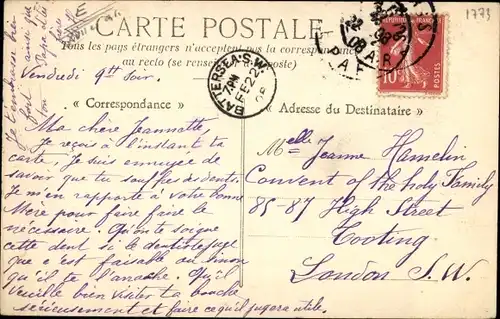 1773
CARTE POSTALE
Tous les pays étrangers n'acceptent pas la correspondance
au recto (se renseigner à la poste)
Vendredi 9hr Soir.
BATTERSEA. S.W.
FE 22
08
10
POSTES
« Correspondance »
« Adresse du Destinataire »
Ma chère Jeannette,
Je reçois à l'instant ta
carte, Je suis ennuyée de
savoir que tu souffres des dents.
Je m'en rapporte à votre bonne
Mère pour faire faire le
nécessaire. Qu'on te soigne
cette dent si le dentiste juge
que c'est faisable ou sinon
qu'il te l'arrache. Qu'il
veuille bien visiter ta bouche
sérieusement et faire ce qu'il jugera utile.
Melle Jeanne Hamelin
Convent of the holy Family
85-87 High Street
Tooting
London S.W.
Je t'embrasse bien
fort ainsi que
ton